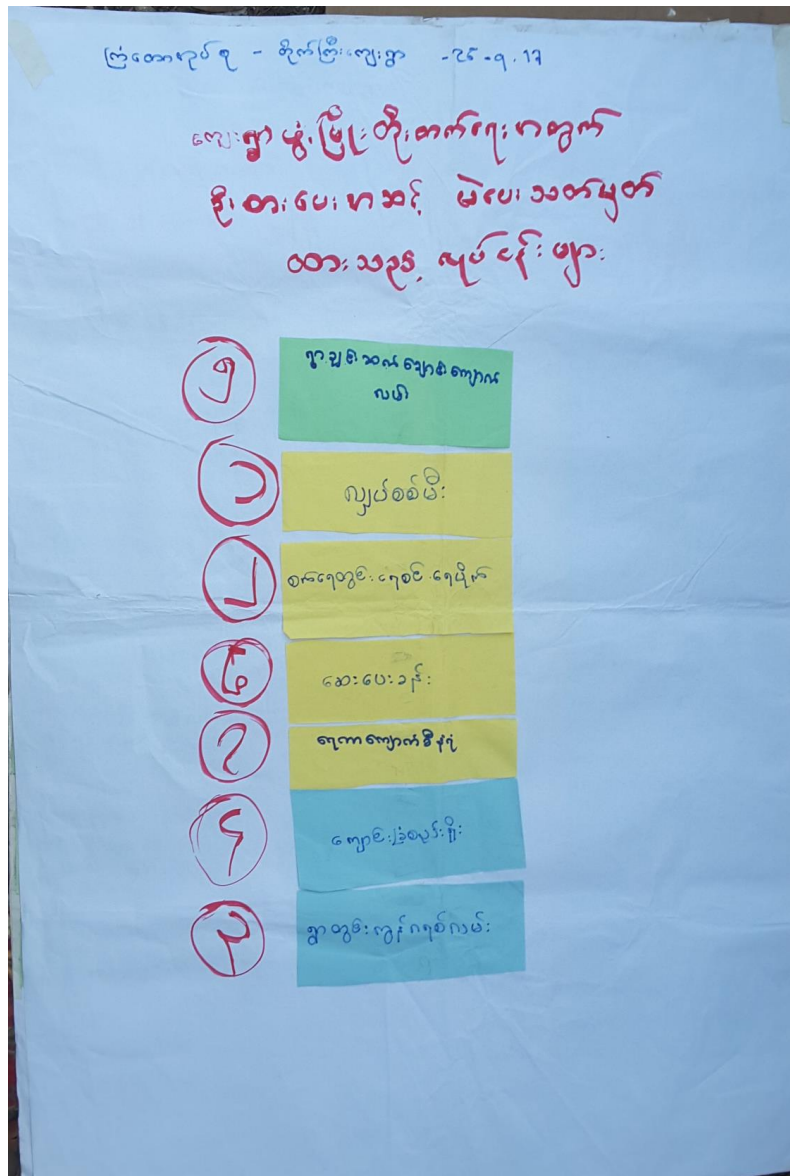 ကြံတောအုပ်စု - တိုက်ကြီးကျေးရွာ - 25-9-17
ကျေးရွာဖွံ့ဖြိုးတိုးတက်ရေးအတွက်
ဦးစားပေးအဆင့် မဲပေးသတ်မှတ်
ထားသည့် လုပ်ငန်းများ
၅
ရွာချင်းဆက်ချောင်းကျောက်
လမ်း
၁
လျှပ်စစ်မီး
၂
စက်ရေတွင်း ရေစင် ရေပိုက်
၆
ဆေးပေးခန်း
၇
ရေကာကျောက်စီနံရံ
၄
ကျောင်းခြံစည်းရိုး
၃
ရွာတွင်းကွန်ကရစ်လမ်း